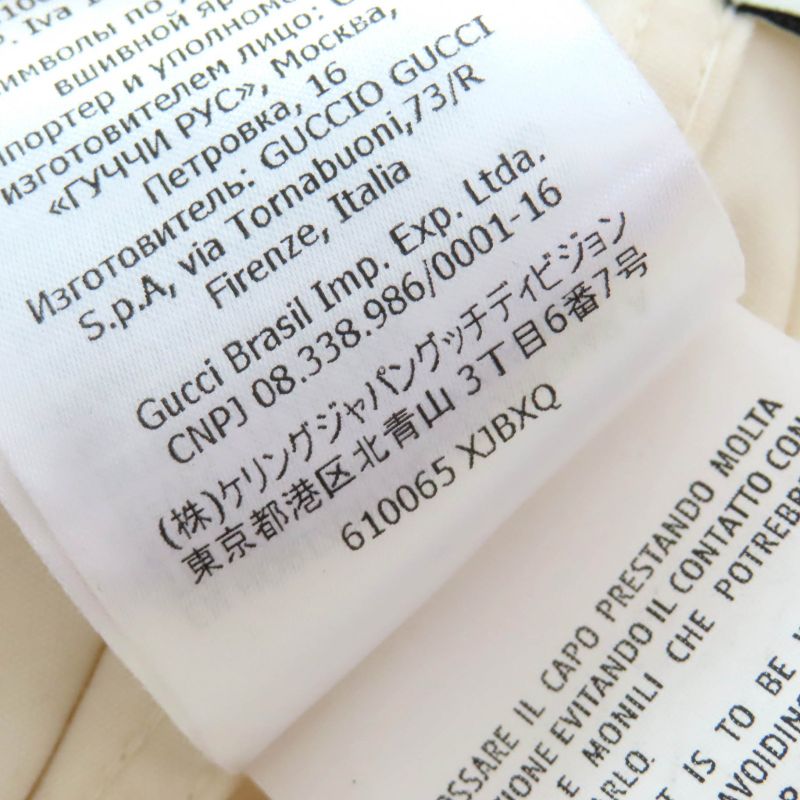 Iva
символы по
вшивной
и
изготовителем лицо:
«ГУЧЧИ РУС», Москва,
Петровка, 16
Изготовитель: GUCCIO GUCCI
S.p.A, via Tornabuoni,73/R
Firenze, Italia
Gucci Brasil Imp. Exp. Ltda.
CNPJ 08.338.986/0001-16
(株)ケリングジャパングッチディビジョン
東京都港区北青山 3丁目6番7号
610065 XJBXQ
IL CAPO PRESTANDO MOLTA
EVITANDO IL CONTATTO CON
E MONILI CHE
IS TO BE